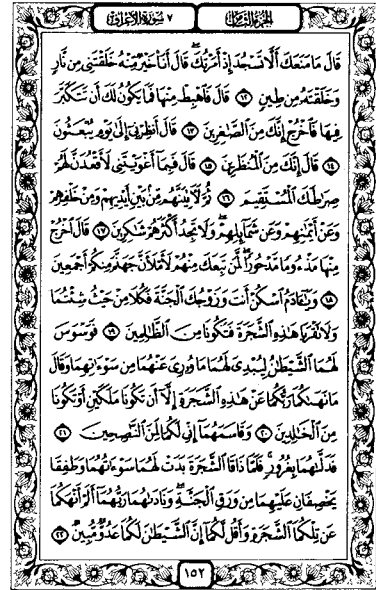 الجزء الثامن
٧ سورة الأعراف
قَالَ مَا مَنَعَكَ أَلَّا تَسْجُدَ إِذْ أَمَرْتُكَ قَالَ أَنَا۠ خَيْرٌ مِّنْهُ خَلَقْتَنِي مِن نَّارٍ
وَخَلَقْتَهُۥ مِن طِينٍ ١٢ قَالَ فَٱهْبِطْ مِنْهَا فَمَا يَكُونُ لَكَ أَن تَتَكَبَّرَ
فِيهَا فَٱخْرُجْ إِنَّكَ مِنَ ٱلصَّٰغِرِينَ ١٣ قَالَ أَنظِرْنِيٓ إِلَىٰ يَوْمِ يُبْعَثُونَ
١٤ قَالَ إِنَّكَ مِنَ ٱلْمُنظَرِينَ ١٥ قَالَ فَبِمَآ أَغْوَيْتَنِي لَأَقْعُدَنَّ لَهُمْ
صِرَٰطَكَ ٱلْمُسْتَقِيمَ ١٦ ثُمَّ لَأٓتِيَنَّهُم مِّنۢ بَيْنِ أَيْدِيهِمْ وَمِنْ خَلْفِهِمْ
وَعَنْ أَيْمَٰنِهِمْ وَعَن شَمَآئِلِهِمْ وَلَا تَجِدُ أَكْثَرَهُمْ شَٰكِرِينَ ١٧ قَالَ ٱخْرُجْ
مِنْهَا مَذْءُومًا مَّدْحُورًا لَّمَن تَبِعَكَ مِنْهُمْ لَأَمْلَأَنَّ جَهَنَّمَ مِنكُمْ أَجْمَعِينَ
١٨ وَيَٰٓـَٔادَمُ ٱسْكُنْ أَنتَ وَزَوْجُكَ ٱلْجَنَّةَ فَكُلَا مِنْ حَيْثُ شِئْتُمَا
وَلَا تَقْرَبَا هَٰذِهِ ٱلشَّجَرَةَ فَتَكُونَا مِنَ ٱلظَّٰلِمِينَ ١٩ فَوَسْوَسَ
لَهُمَا ٱلشَّيْطَٰنُ لِيُبْدِيَ لَهُمَا مَا وُۥرِيَ عَنْهُمَا مِن سَوْءَٰتِهِمَا وَقَالَ
مَا نَهَىٰكُمَا رَبُّكُمَا عَنْ هَٰذِهِ ٱلشَّجَرَةِ إِلَّآ أَن تَكُونَا مَلَكَيْنِ أَوْ تَكُونَا
مِنَ ٱلْخَٰلِدِينَ ٢٠ وَقَاسَمَهُمَآ إِنِّي لَكُمَا لَمِنَ ٱلنَّٰصِحِينَ ٢١
فَدَلَّىٰهُمَا بِغُرُورٍ فَلَمَّا ذَاقَا ٱلشَّجَرَةَ بَدَتْ لَهُمَا سَوْءَٰتُهُمَا وَطَفِقَا
يَخْصِفَانِ عَلَيْهِمَا مِن وَرَقِ ٱلْجَنَّةِ وَنَادَىٰهُمَا رَبُّهُمَآ أَلَمْ أَنْهَكُمَا
عَن تِلْكُمَا ٱلشَّجَرَةِ وَأَقُل لَّكُمَآ إِنَّ ٱلشَّيْطَٰنَ لَكُمَا عَدُوٌّ مُّبِينٌ ٢٢
١٥٢